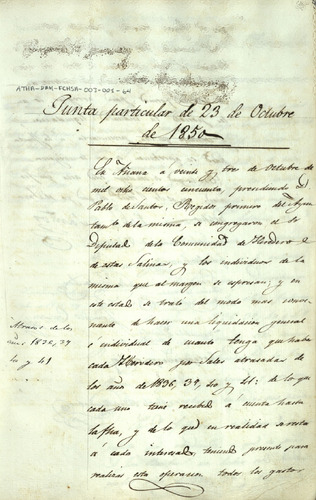 ATHA-DAH-FCHSA-003-001-64
Junta particular de 23 de Octubre
de 1850
En Añana a veinte y tres de octubre de
mil ocho cientos cincuenta, presidiendo D.
Pablo de Santos, Regidor primero del Ayun
tamto de la misma, se congregaron el Sr
Diputado de la Comunidad de Herederos
de estas Salinas, y los individuos de la
misma que al margen se espresan; y en
este estado se trató del modo mas conve
niente de hacer una liquidacion general
é individual de cuanto tenga que haber
cada Heredero por Sales atrasadas de
los años de 1836, 39, 40 y 41: de lo que
cada uno tiene recibido a cuenta hasta
la fha, y de lo que en realidad se resta
á cada interesado, teniendo presente para
realizar esta operacion todos los gastos
Atrasos de los
años 1836, 39
40 y 41